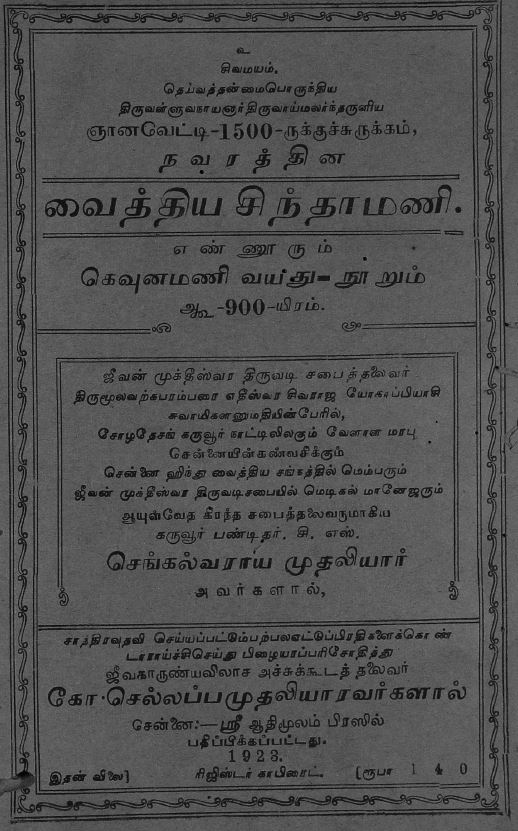 உ
சிவமயம்.
தெய்வத்தன்மைபொருந்திய
திருவள்ளுவநாயனார்திருவாய்மலர்ந்தருளிய
ஞானவேட்டி-1500-ருக்குச்சுருக்கம்,
நவரத்தின
வைத்திய சிந்தாமணி.
எண்ணூரும்
கெவுனமணி வயது=நூறும்
ஆ-900-யிரம்.
ஜீவன் முக்தீஸ்வர திருவடி சபைத்தலைவர்
திருமூலவற்கபரம்பரை எதீஸ்வர சிவராஜ யோகாப்பியாசி
சுவாமிகளனுமதியின்பேரில்,
சோழதேசங் கருவூர் நாட்டிலிலகும் வேளான மரபு
சென்னையின்கண்வசிக்கும்
சென்னை ஹிந்து வைத்திய சங்கத்தில் மெம்பரும்
ஜீவன் முக்தீஸ்வர திருவடிசபையில் மெடிகல் மானேஜரும்
ஆயுள்வேத கிரந்த சபைத்தலைவருமாகிய
கருவூர் பண்டிதர். சி. எஸ்.
செங்கல்வராய முதலியார்
அவர்களால்,
சாத்திரவுதவி செய்யப்பட்டும்பற்பலஏட்டுப்பிரதிகளைக்கொண்
டாராய்ச்சிசெய்து பிழையரப்பரிசோதித்து
ஜீவகாருண்யவிலாச அச்சுக்கூடத் தலைவர்
கோ.செல்லப்பமுதலியாரவர்களால்
சென்னை:— ஸ்ரீ ஆதிமூலம் பிரஸில்
பதிப்பிக்கப்பட்டது.
1923.
இதன் விலை] ரிஜிஸ்டர் காபிரைட். [ரூபா 1 4 0